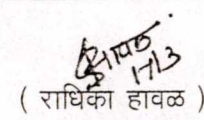 17/3
( राधिका हावळ )